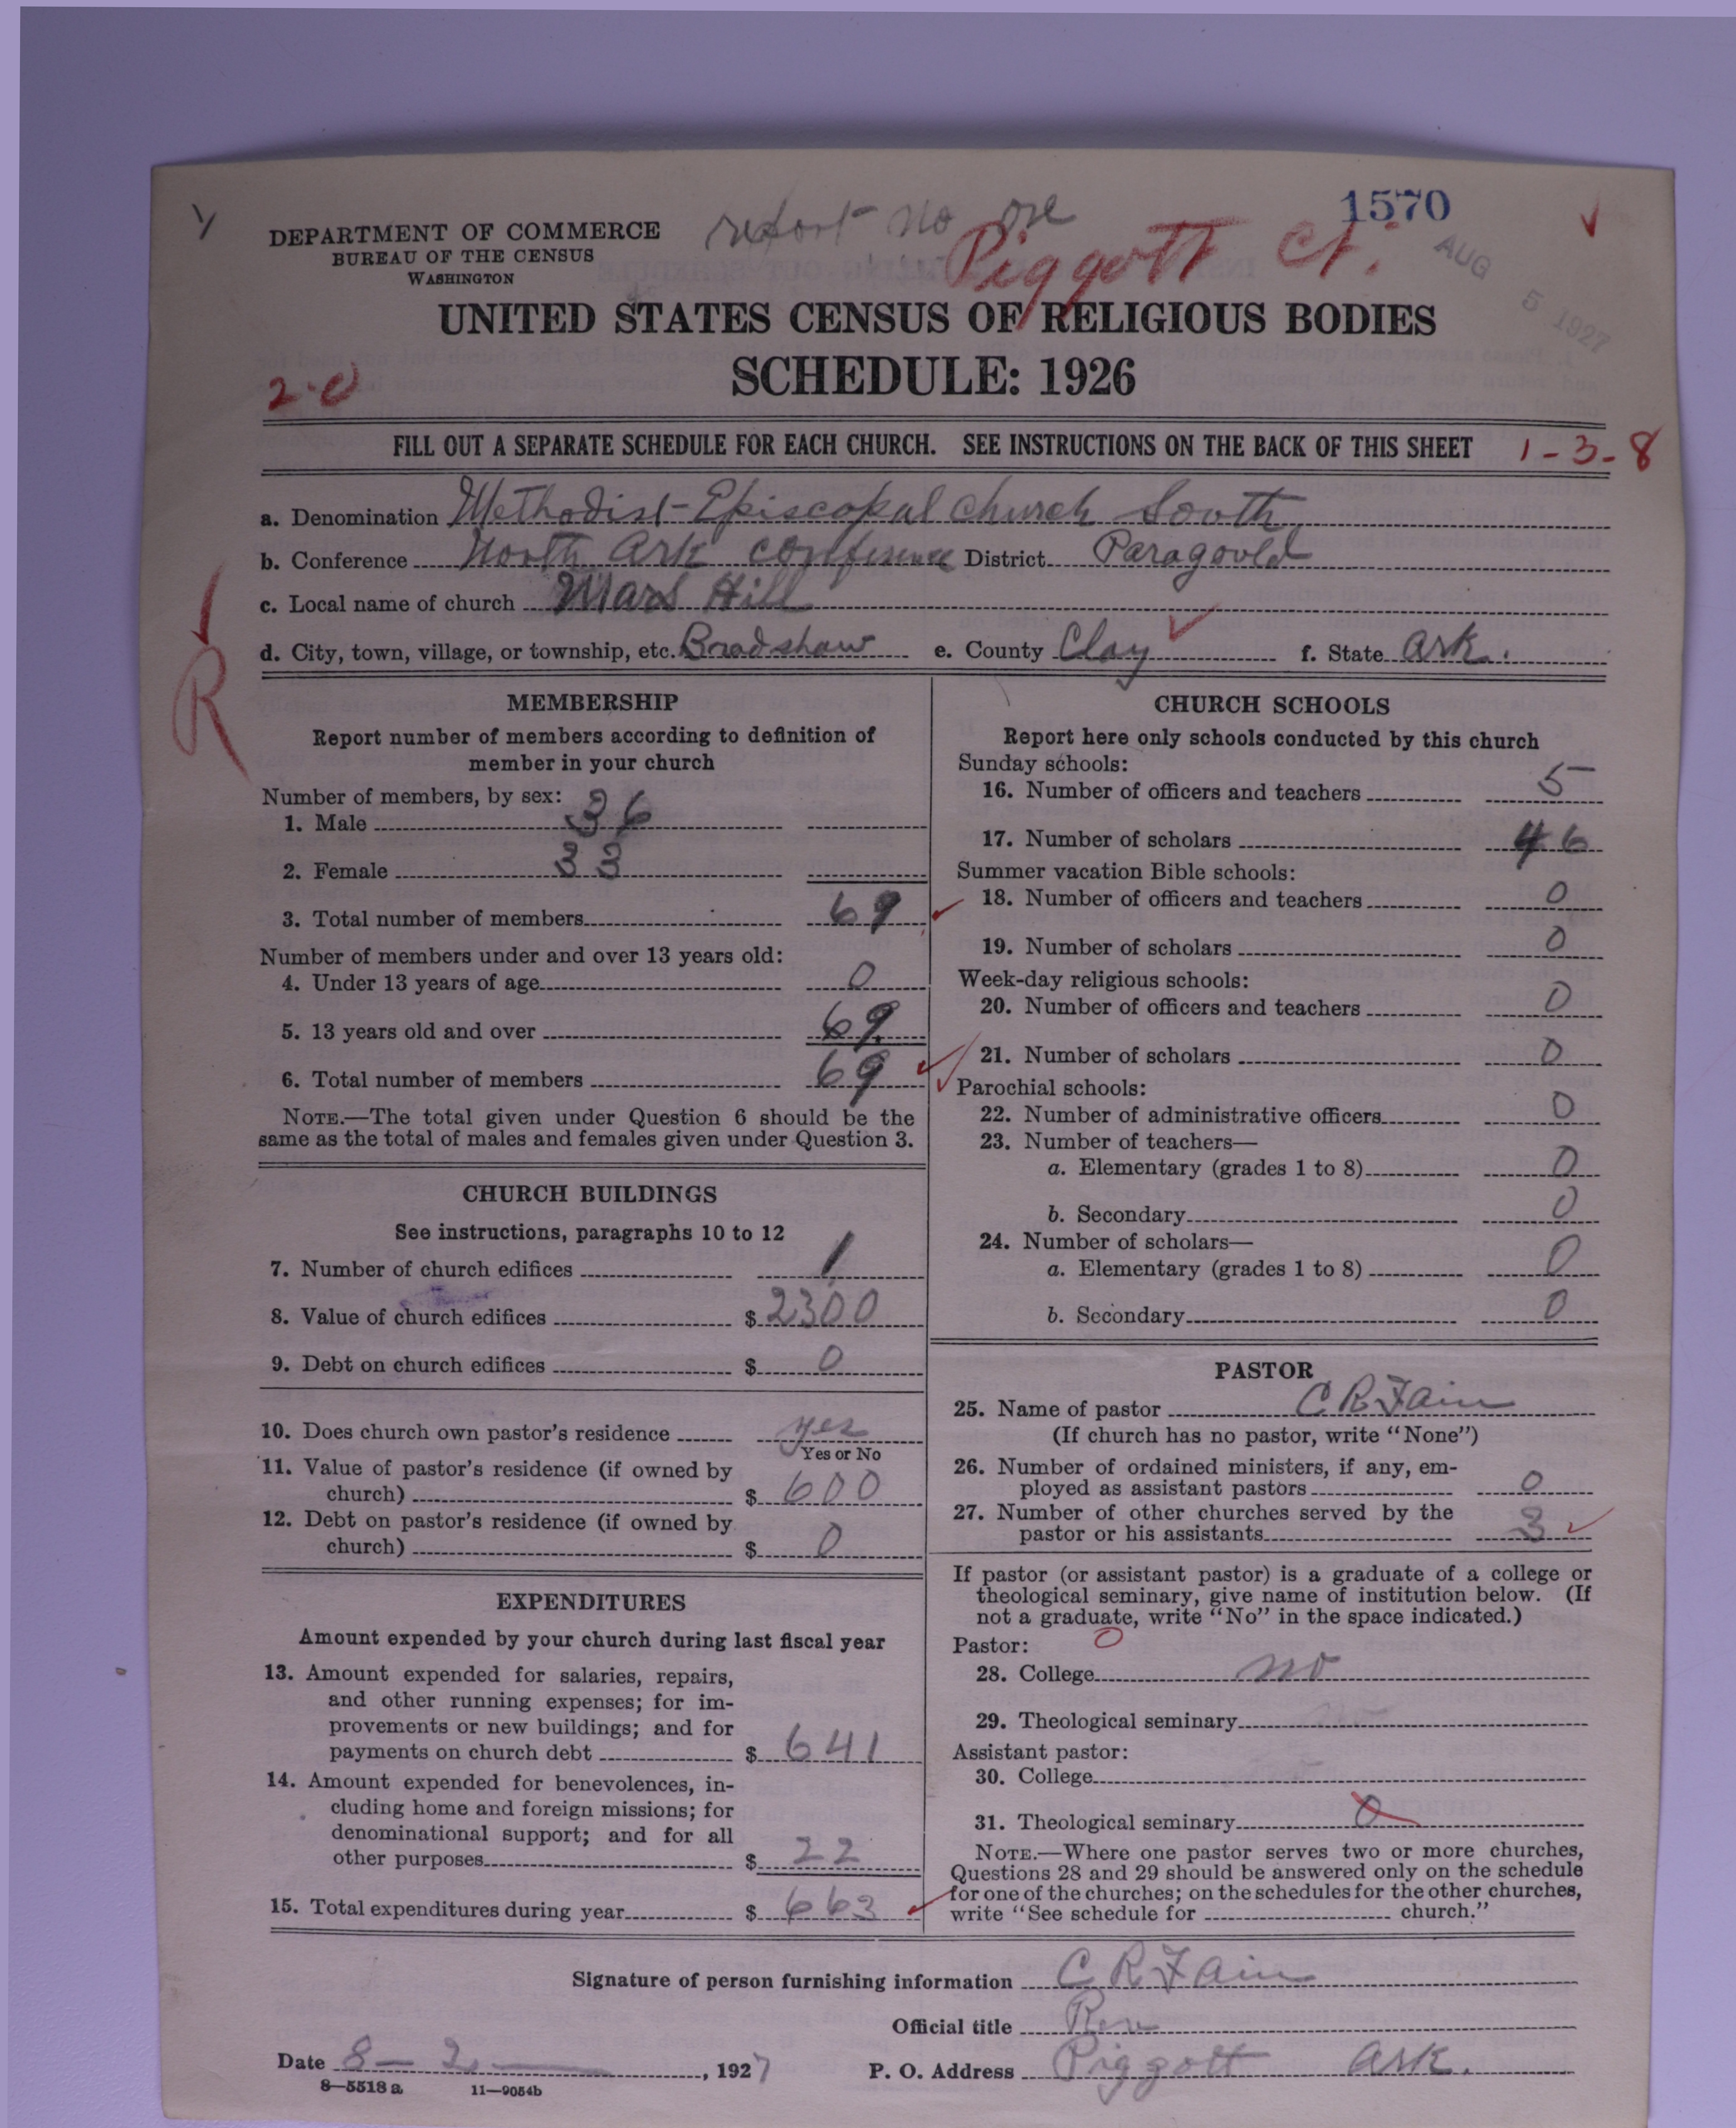 report no one
1570
DEPARTMENT OF COMMERCE
BUREAU OF THE CENSUS
WASHINGTON
Piggott Ct.
AUG 5 1927
UNITED STATES CENSUS OF RELIGIOUS BODIES
SCHEDULE: 1926
2-0
FILL OUT A SEPARATE SCHEDULE FOR EACH CHURCH. SEE INSTRUCTIONS ON THE BACK OF THIS SHEET 1-3-8
a. Denomination Methodist-Episcopal church South
b. Conference North Ark conference District Paragould
c. Local name of church Mars Hill
d. City, town, village, or township, etc. Bradshaw e. County Clay f. State Ark.
R
MEMBERSHIP
Report number of members according to definition of
member in your church
Number of members, by sex:
1. Male 36
2. Female 33
3. Total number of members 69
Number of members under and over 13 years old:
4. Under 13 years of age 0
5. 13 years old and over 69
6. Total number of members 69
NOTE.—The total given under Question 6 should be the
same as the total of males and females given under Question 3.
CHURCH BUILDINGS
See instructions, paragraphs 10 to 12
7. Number of church edifices 1
8. Value of church edifices $ 2300
9. Debt on church edifices $ 0
10. Does church own pastor's residence yes
Yes or No
11. Value of pastor's residence (if owned by
church) $ 600
12. Debt on pastor's residence (if owned by
church) $ 0
EXPENDITURES
Amount expended by your church during last fiscal year
13. Amount expended for salaries, repairs,
and other running expenses; for im-
provements or new buildings; and for
payments on church debt $ 641
14. Amount expended for benevolences, in-
cluding home and foreign missions; for
denominational support; and for all
other purposes $ 22
15. Total expenditures during year $ 663
CHURCH SCHOOLS
Report here only schools conducted by this church
Sunday schools:
16. Number of officers and teachers 5
17. Number of scholars 46
Summer vacation Bible schools:
18. Number of officers and teachers 0
19. Number of scholars 0
Week-day religious schools:
20. Number of officers and teachers 0
21. Number of scholars 0
Parochial schools:
22. Number of administrative officers 0
23. Number of teachers—
a. Elementary (grades 1 to 8) 0
b. Secondary 0
24. Number of scholars—
a. Elementary (grades 1 to 8) 0
b. Secondary 0
PASTOR
25. Name of pastor C R Fain
(If church has no pastor, write "None")
26. Number of ordained ministers, if any, em-
ployed as assistant pastors 0
27. Number of other churches served by the
pastor or his assistants 3
If pastor (or assistant pastor) is a graduate of a college or
theological seminary, give name of institution below. (If
not a graduate, write "No" in the space indicated.)
Pastor: 0
28. College no
29. Theological seminary
Assistant pastor:
30. College
31. Theological seminary 0
NOTE.—Where one pastor serves two or more churches,
Questions 28 and 29 should be answered only on the schedule
for one of the churches; on the schedules for the other churches,
write "See schedule for church."
Signature of person furnishing information C R Fain
Official title Rev
Date 8-2, 1927 P. O. Address Piggott Ark.
8—5518 a 11—9054b